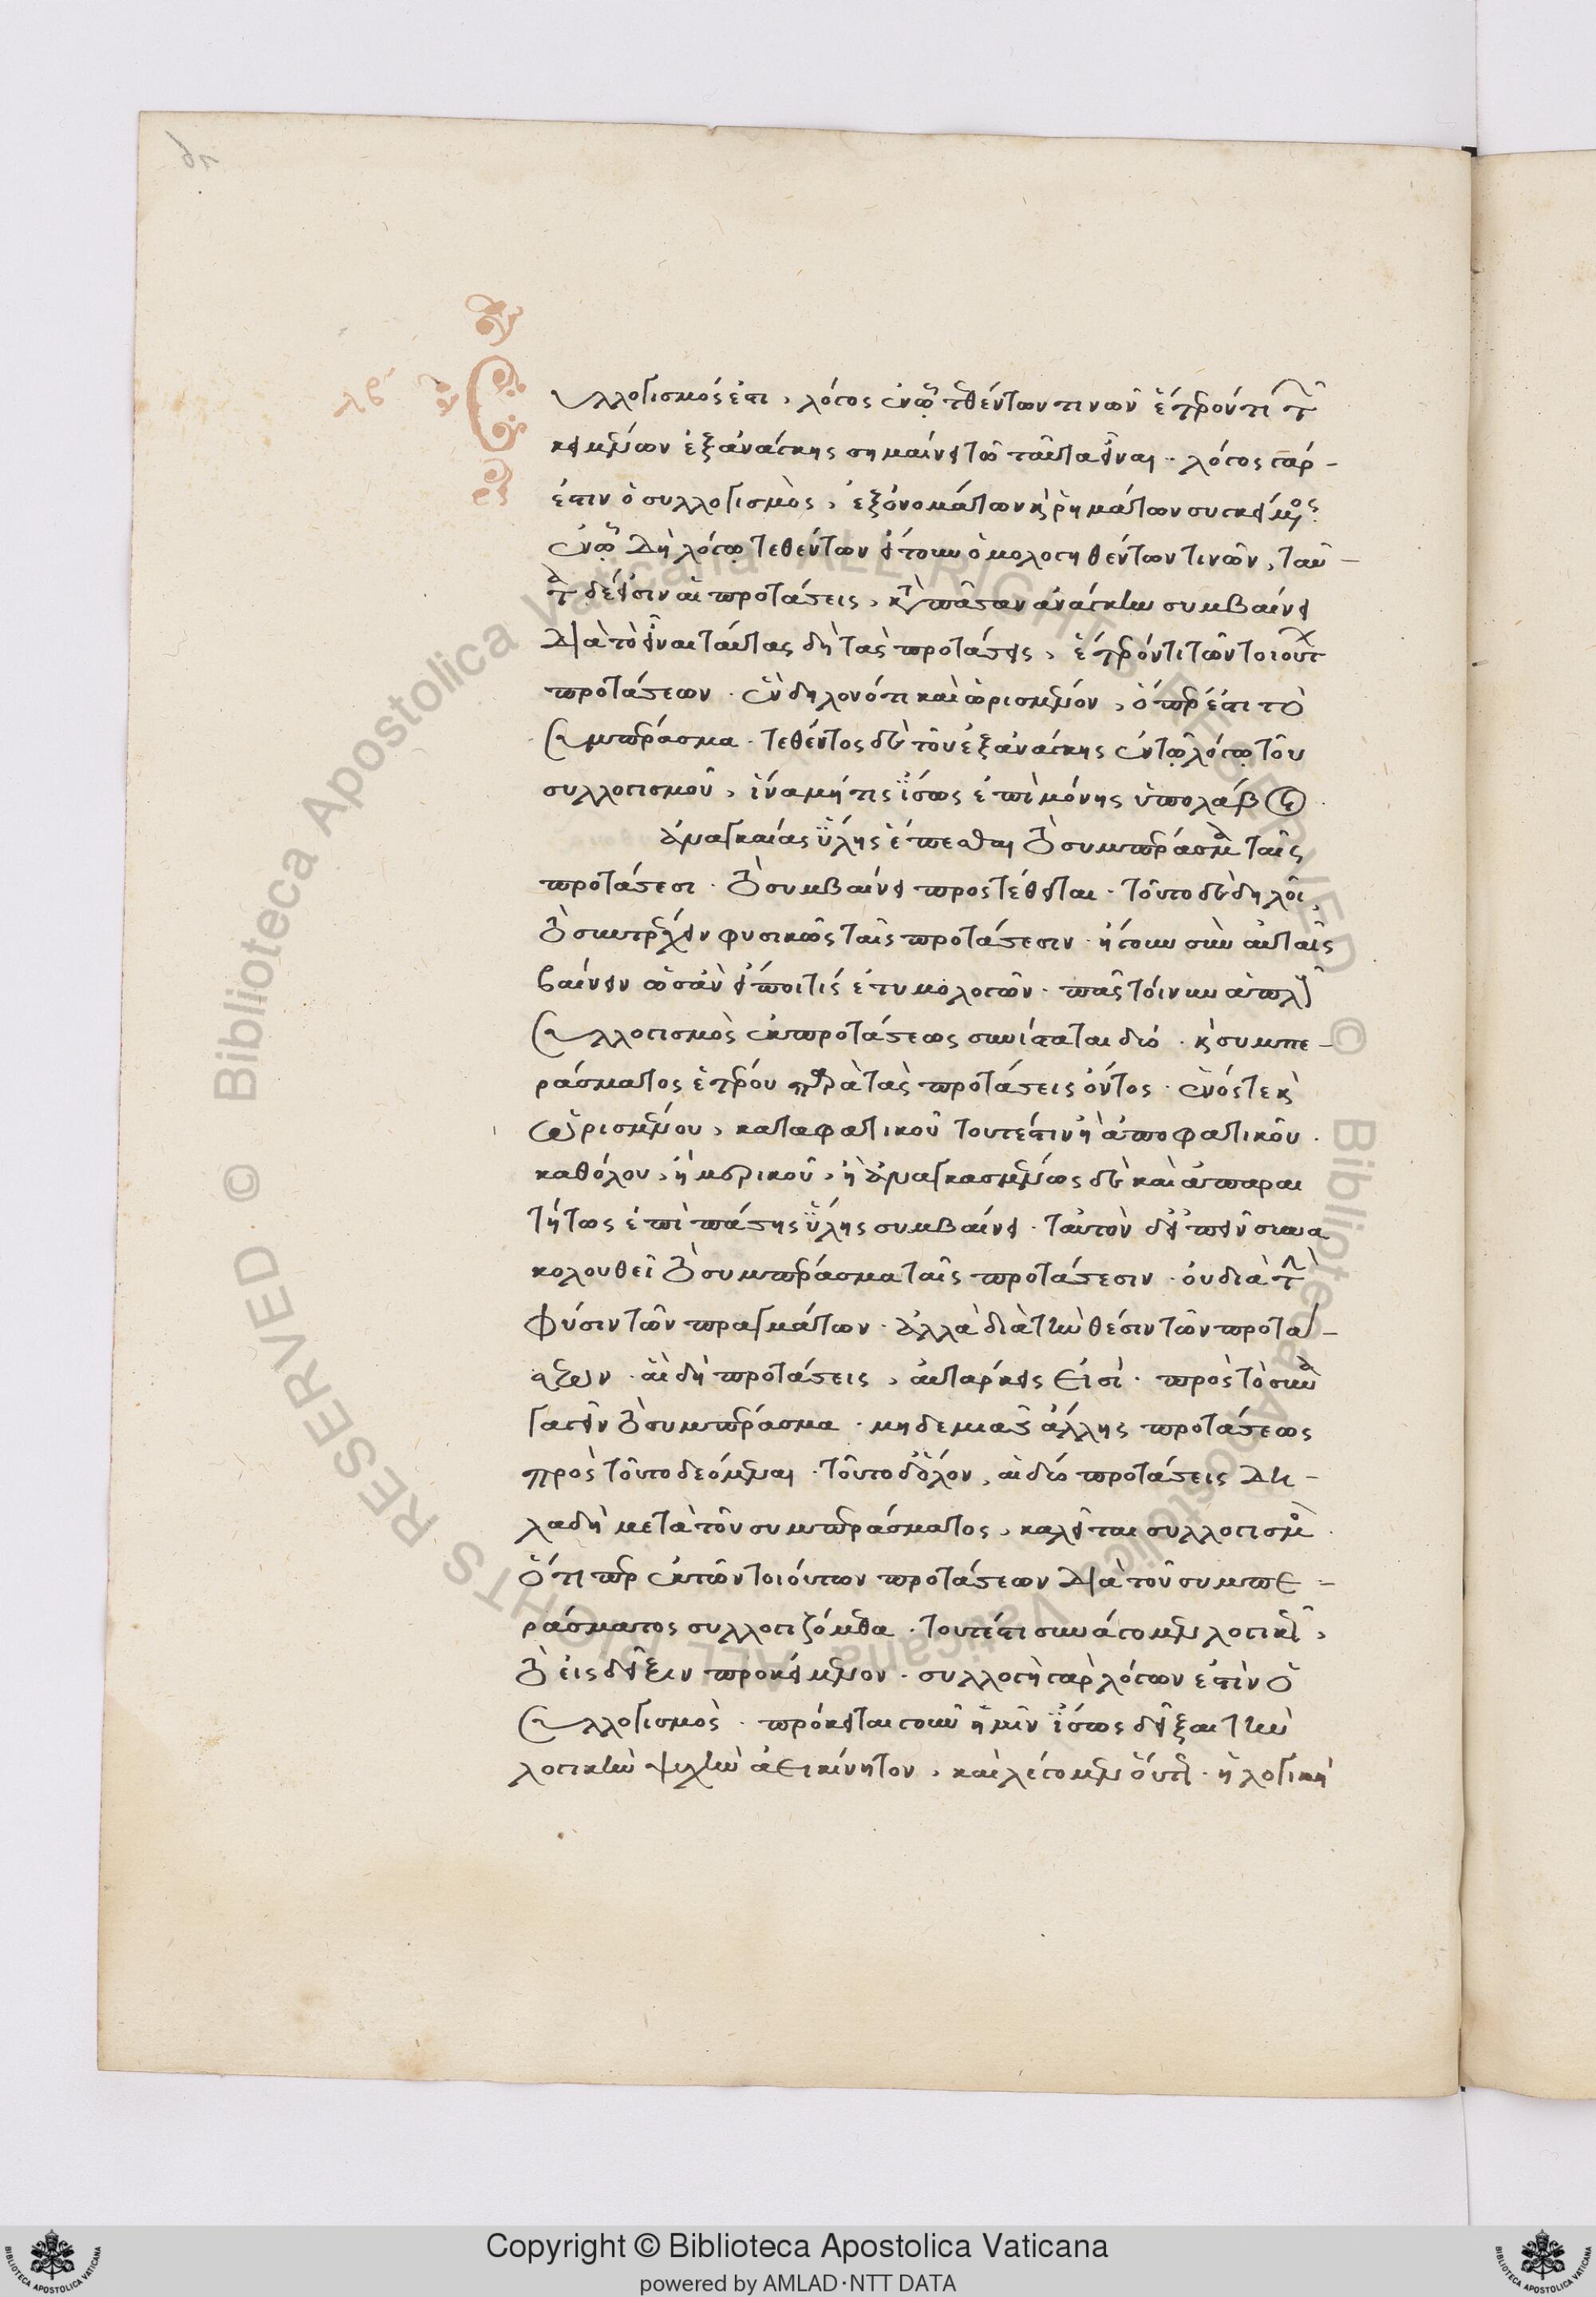 Συλλογισμός ἐστι, λόγος ἐν ᾧ τεθέντων τινῶν ἕτερόν τι τῶν
κειμένων ἐξ ἀνάγκης σημαίνει τῶ ταῦτα εἶναι. λόγος γάρ
ἐστιν ὁ συλλογισμὸς, ἐξ ὀνομάτων καὶ ῥημάτων συγκείμενος.
ἐν ᾧ δὴ λόγῳ τεθέντων ἤγουν ὁμολογηθέντων τινῶν, ταῦ
τα δέ εἰσιν αἱ προτάσεις, κατὰ πᾶσαν ἀνάγκην συμβαίνει
διὰ τὸ εἶναι ταύτας δὴ τὰς προτάσεις, ἕτερόν τι τῶν τοιούτων
προτάσεων. ἓν δηλονότι καὶ ὡρισμένον, ὅπερ ἐστὶ τὸ
συμπέρασμα. τεθέντος δὲ τοῦ ἐξ ἀνάγκης ἐν τῷ λόγῳ τοῦ
συλλογισμοῦ, ἵνα μή τις ἴσως ἐπὶ μόνης ὑπολάβῃ
ἀναγκαίας ὕλης ἕπεσθαι τὸ συμπέρασμα ταῖς
προτάσεσι. τὸ συμβαίνει προστέθειται. τοῦτο δὲ δηλοῖ,
τὸ συντρέχειν φυσικῶς ταῖς προτάσεσιν. ἤγουν σὺν αὐταῖς
βαίνειν ὡσὰν εἴποι τίς ἐτυμολογῶν. πᾶς τοίνυν ἁπλοῦς
συλλογισμὸς ἐκ προτάσεως συνίσταται δύο. καὶ συμπε
ράσματος ἑτέρου παρὰ τὰς προτάσεις ὄντος. ἑνός τε καὶ
ὡρισμένου, καταφατικοῦ τουτέστιν ἢ ἀποφατικοῦ.
καθόλου, ἢ μερικοῦ, ἢ ἀναγκασμένως δὲ καὶ ἀπαραι
τήτως ἐπὶ πάσης ὕλης συμβαίνει. ταυτὸν δ' εἰπεῖν συνα
κολουθεῖ τὸ συμπέρασμα ταῖς προτάσεσιν. οὐ διὰ τὴν
φύσιν τῶν πραγμάτων. ἀλλὰ διὰ τὴν θέσιν τῶν προτά
σεων. αἳ δὴ προτάσεις, αὐτάρκεις εἰσὶ. πρὸς τὸ συνά
γαγεῖν τὸ συμπέρασμα. μηδεμιᾶς ἄλλης προτάσεως
πρὸς τοῦτο δεόμεναι. τοῦτο δ' ὅλον, αἱ δύο προτάσεις δη
λαδὴ μετὰ τοῦ συμπεράσματος, καλεῖται συλλογισμός.
ὅτι περ ἐκ τῶν τοιούτων προτάσεων διὰ τοῦ συμπε
ράσματος συλλογιζόμεθα. τουτέστι συνάγομεν λογικῶς,
τὸ εἰς δεῖξιν προκείμενον. συλλογὴ γὰρ λόγων ἐστὶν ὁ
συλλογισμὸς. πρόκειται γοῦν ἡμῖν ἴσως δεῖξαι τὴν
λογικὴν ψυχὴν ἀεικίνητον, καὶ λέγομεν οὕτως. ἡ λογικὴ
Copyright © Biblioteca Apostolica Vaticana
powered by AMLAD·NTT DATA